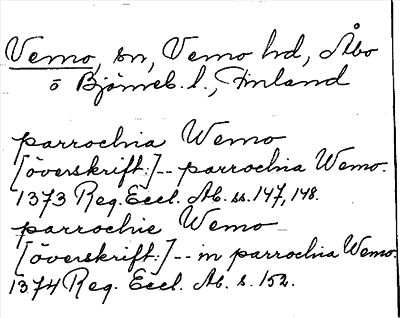 Vemo, sn, Vemo hd, Åbo
o Björneb. l., Finland
parrochia Wemo
[överskrift:] -- parrochia Wemo.
1373 Reg. Eccl. Ab. ss. 147, 148.
parrochie Wemo
[överskrift:] -- in parrochia Wemo.
1374 Reg. Eccl. Ab. s. 152.